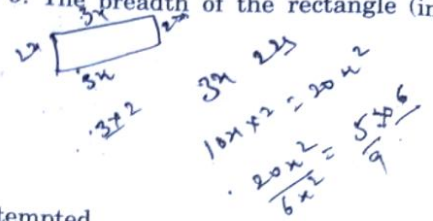 The breadth of the rectangle (in
3x
2x
2x
3x
3x 2x
3+2
10x × 2 = 20x²
20x²/6x² =
tempted